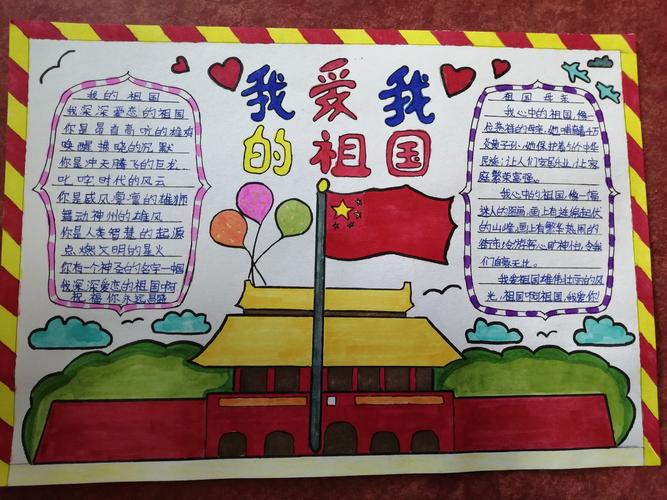 我爱我
的祖国
我的祖国
我深深爱恋的祖国
你是昂首高吭的雄鸡
唤醒拂晓的沉默
你是冲天腾飞的巨龙
叱咤时代的风云
你是威风凛凛的雄狮
舞动神州的雄风
你是人类智慧的起源
点燃文明的星火
你有一个神圣的名字
我深深爱恋的祖国啊
祝福你永远昌盛
祖国母亲
我心中的祖国,像一
位慈祥的母亲,她哺育千万
炎黄子孙,她保护着5千中华
民族;让人们安居乐业,让家
庭繁荣富强。
我心中的祖国,像一幅
迷人的图画,画上有连绵起伏
的山峰,画上有繁华热闹的
街市,令游客心旷神怡,令我
们自豪
我爱祖国雄伟壮丽的风
光,祖国啊祖国,我爱你!